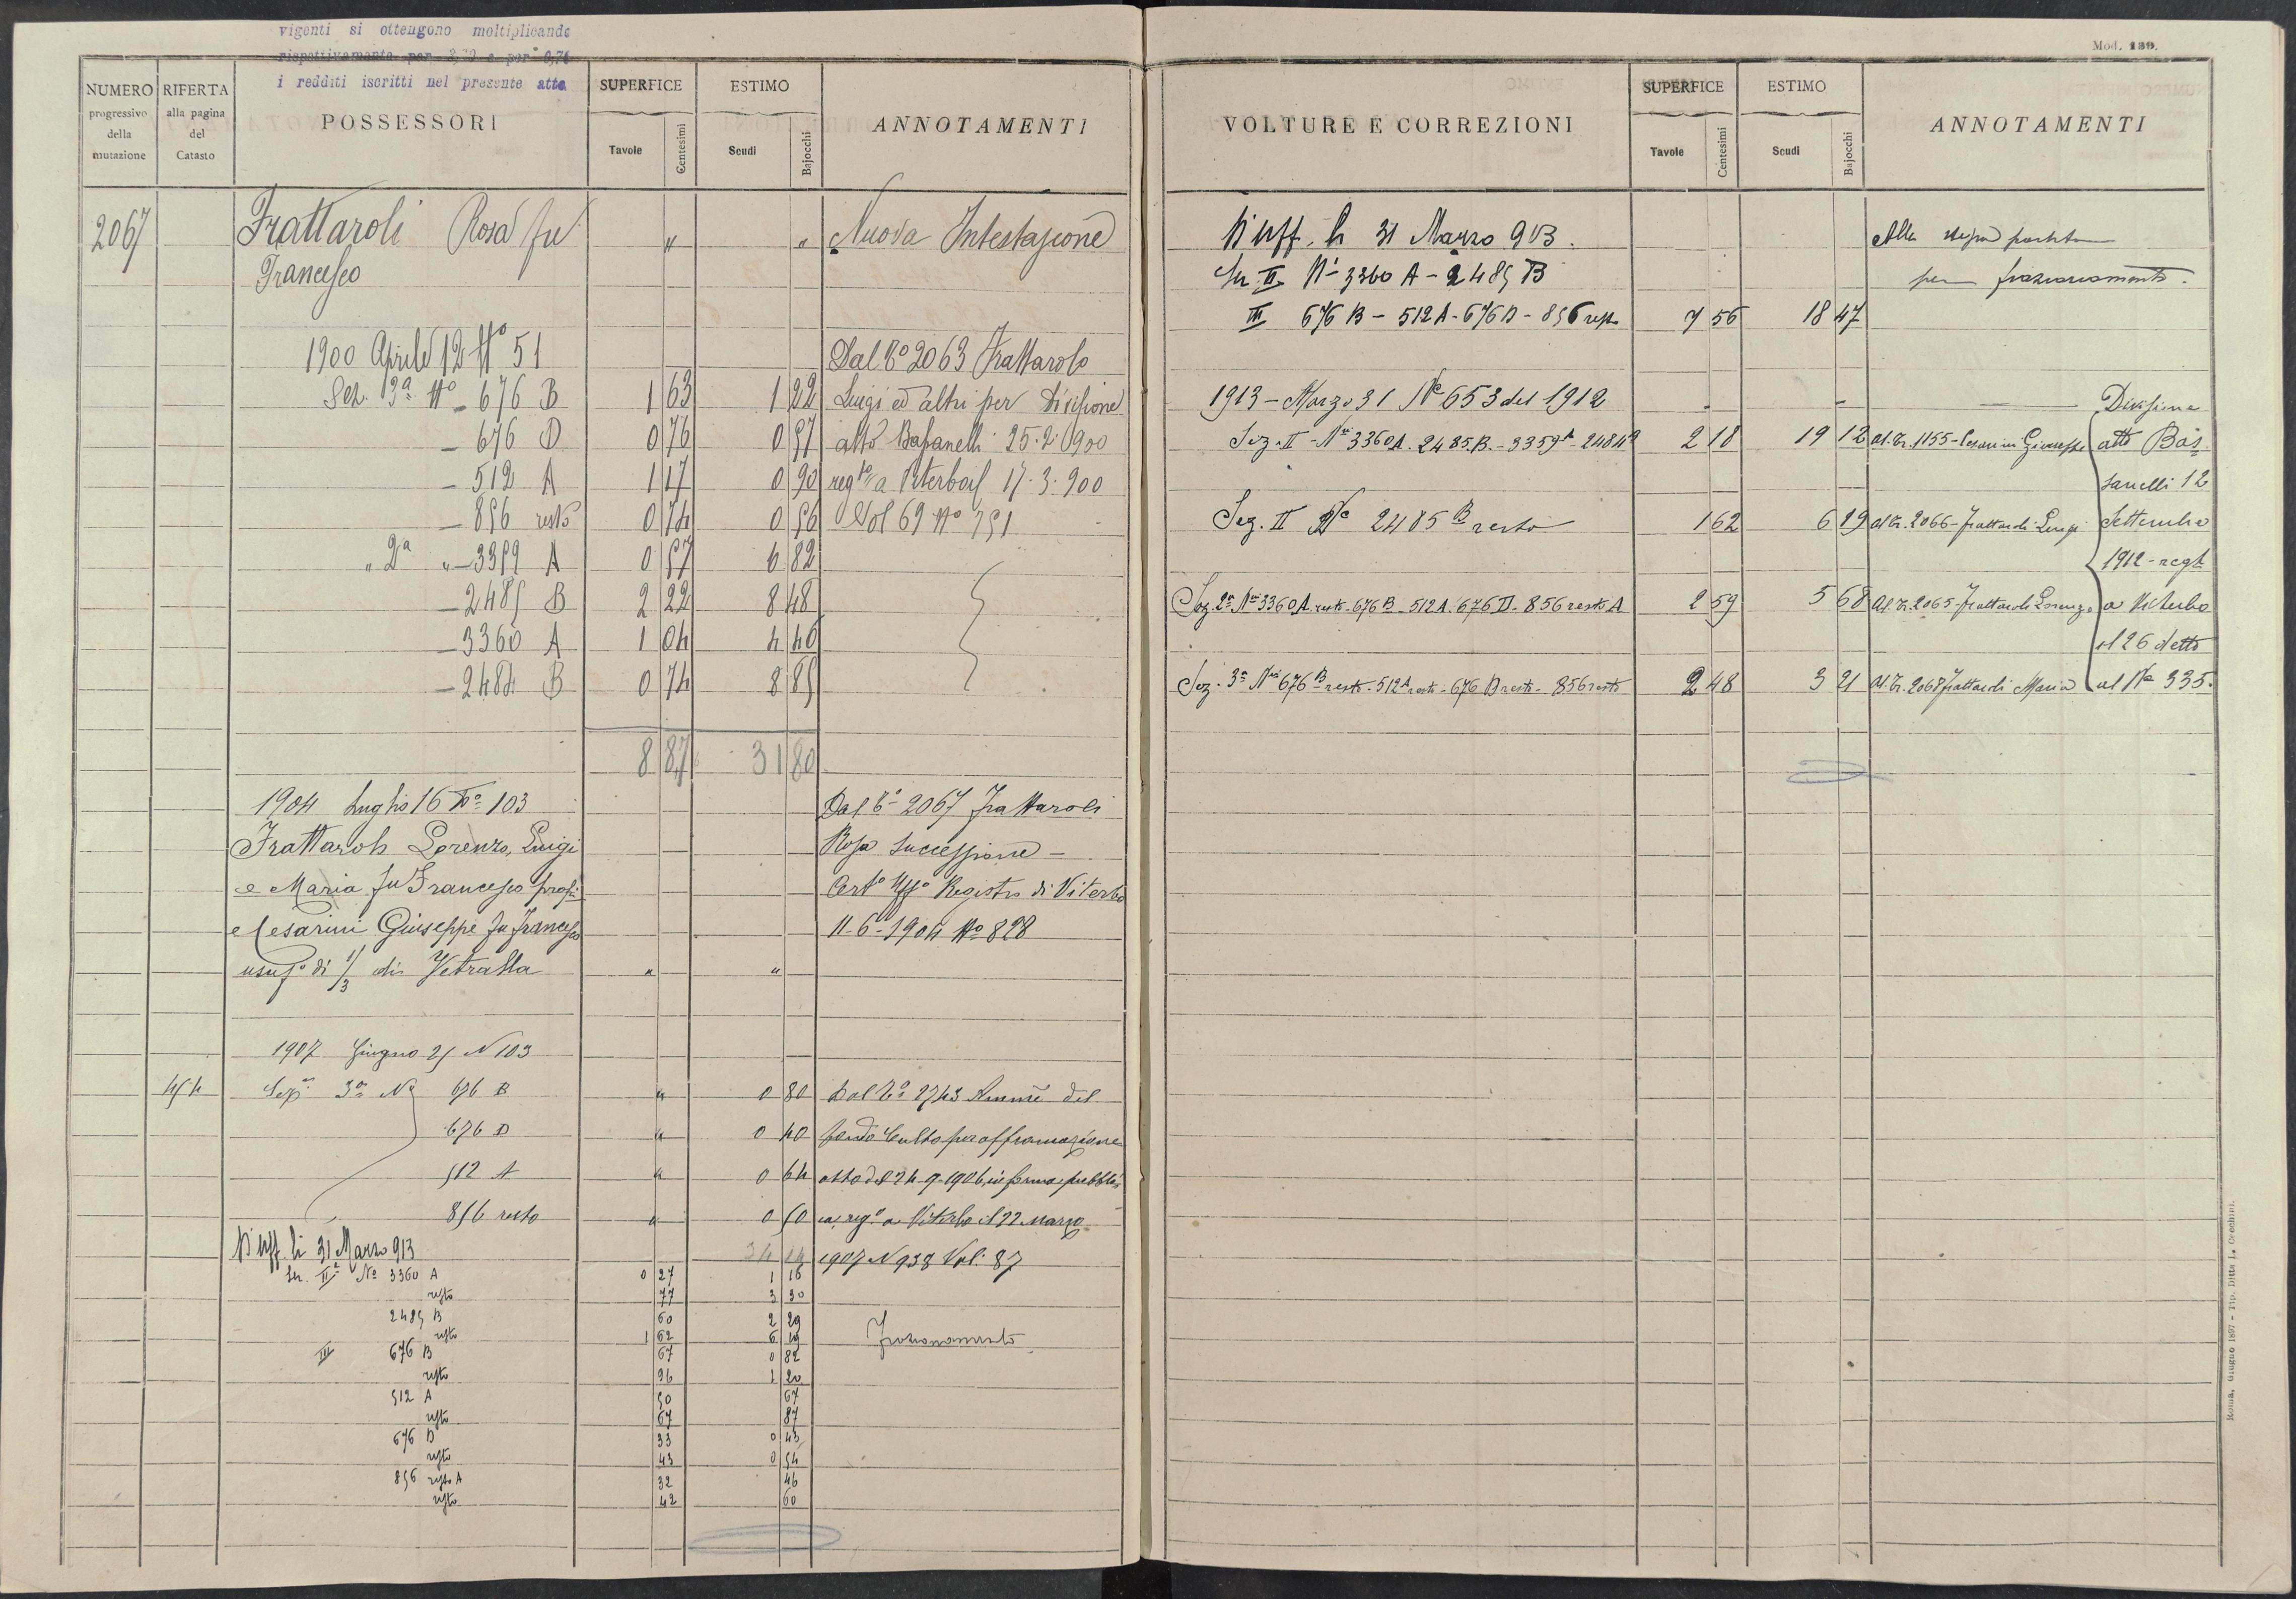 vigenti si ottengono moltiplicando
rispettivamente per
i redditi iscritti nel presente atto
NUMERO progressivo della mutazione
RIFERTA alla pagina del Catasto
POSSESSORI
SUPERFICE
Tavole Centesimi
ESTIMO
Scudi Bajocchi
ANNOTAMENTI
2067 Frattaroli Rosa fu " " Nuova Intestazione
Francesco
1900 Aprile 12 No 51 Dal To 2063 Frattarolo
Sez. 3a No - 676 B 1 63 1 22 Luigi ed altri per Divisione
- 676 D 0 76 0 57 atto Basanelli 25.2.900
- 512 A 1 17 0 90 regto a Viterbo il 17.3.900
- 856 resto 0 74 0 56 Vol 69 No 751
" 2a " - 3359 A 0 57 6 82
- 2485 B 2 22 8 48
- 3360 A 1 04 4 40
- 2484 B 0 74 8 85
8 87 31 80
1904 Luglio 16 No 103 Dal To 2067 Frattaroli
Frattaroli Lorenzo, Luigi Rosa Successione -
e Maria fu Francesco propri Certo Uffo Registro di Viterbo
e Cesarini Giuseppe fu Francesco 11-6-1904 No 828
usufo di 1/3 di Vetralla " "
1907 Giugno 25 N 103
454 Sez 3a No 676 B " 0 80 Dal To 2743 Ammne del
676 D " 0 40 fondo Culto per affrancazione
512 A " 0 64 atto del 24-9-1906 in forma pubbli
856 resto " 0 50 ca, rego a Viterbo il 22 marzo
D'uff. li 31 Marzo 913 34 14 1907 N 938 Vol. 87
Sez. IIa No 3360 A 0 27 1 16
resto 77 3 30
2485 B 60 2 29
resto 1 62 6 19 Frazionamento
III 676 B 67 0 82
resto 96 1 20
512 A 50 67
resto 67 87
676 D 33 0 43
resto 43 0 54
856 resto A 32 46
resto 42 60
Mod. 139.
VOLTURE E CORREZIONI
SUPERFICE
Tavole Centesimi
ESTIMO
Scudi Bajocchi
ANNOTAMENTI
D'uff. li 31 Marzo 913. Alla stessa partita
Sez. II Ni 3360 A - 2485 B per frazionamento.
III 676 B - 512 A - 676 D - 856 resto 7 56 18 47
1913 - Marzo 31 No 653 del 1912 Divisione
Sez. II - Ni 3360 A. 2485.B. - 3359 A - 2484 B 2 18 19 12 Al Tr. 1155 - Cesarini Giuseppe atto Bas
sanelli 12
Sez. II No 2485 B resto 1 62 6 19 Al Tr. 2066 - Frattaroli Luigi Settembre
1912 - regt
Sez. 2a Ni 3360 A. resto - 676 B - 512 A. 676 D - 856 resto A 2 59 5 68 Al Tr. 2065 - Frattaroli Lorenzo a Viterbo
il 26 detto
Sez. 3a Ni 676 B resto - 512 A resto - 676 D resto - 856 resto 2 48 3 21 Al Tr. 2068 Frattaroli Maria al No 335.
Roma, Giugno 1897 - Tip. Ditta L. Cecchini.